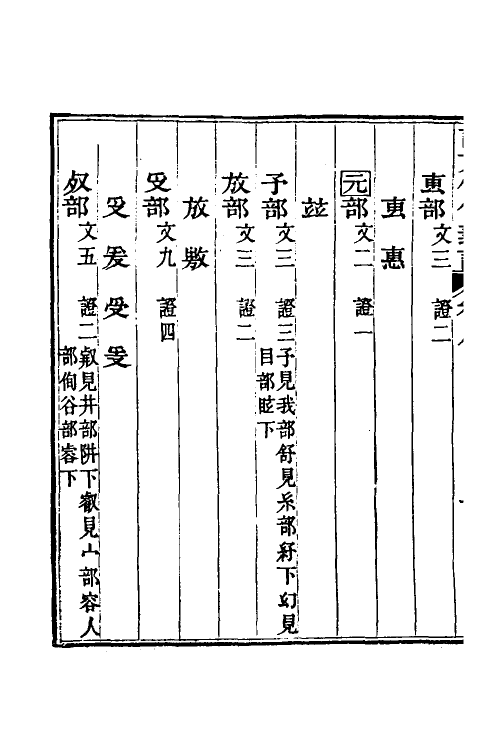 叀部 文三 證二
叀 惠
元部 文二 證一
玆
予部 文三 證三 予見我部舒見糸部紓下幻見
目部眩下
放部 文三 證二
放 敫
𠬪部 文九 證四
𠬪 爰 受
𣦼部 文五 證二 叡見井部阱下叡見宀部容人
部侚谷部容下